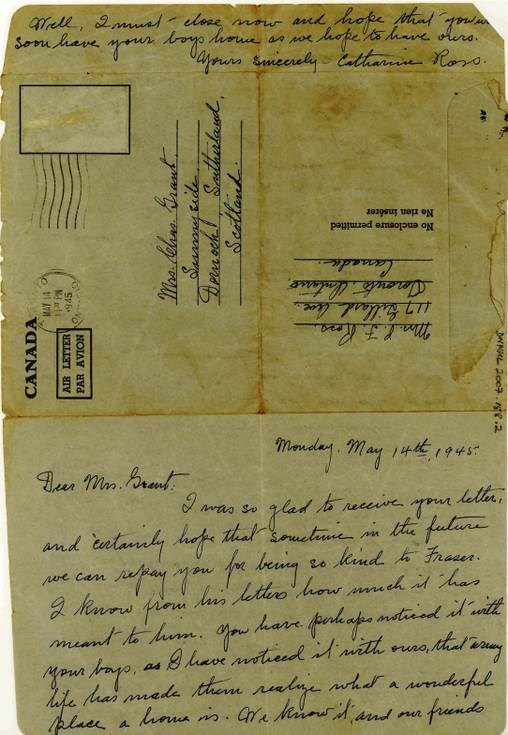 Well, I must close now and hope that you will
soon have your boys home as we hope to have ours.
Yours sincerely Catharine Ross.
CANADA
AIR LETTER
PAR AVION
MAY 14
PM
1945
Mrs. Chas. Grant,
Sunnyside,
Dornoch, Sutherland,
Scotland.
No enclosure permitted
Ne rien insérer
Mrs. J. F. Ross
117 Gillard Ave.
Toronto, Ontario,
Canada.
2007.188.2
Monday, May 14th, 1945.
Dear Mrs. Grant:
I was so glad to receive your letter,
and certainly hope that sometime in the future
we can repay you for being so kind to Fraser.
I know from his letters how much it has
meant to him. You have perhaps noticed it with
your boys, as I have noticed it with ours, that army
life has made them realize what a wonderful
place a home is. We know it, and our friends